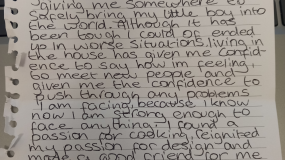 giving me somewhere to
safely bring my little boy into
the world. Although it has
been tough I could of ended
up in worse situations, living in
the house has given me confid-
ence to say how im feeling,
to meet new people and to
given me the confidence to
push through any problems
I am facing, because I know
now I am strong enough to
face anything. I found a
passion for cooking, reignited
my passion for design and
made a good friend for me